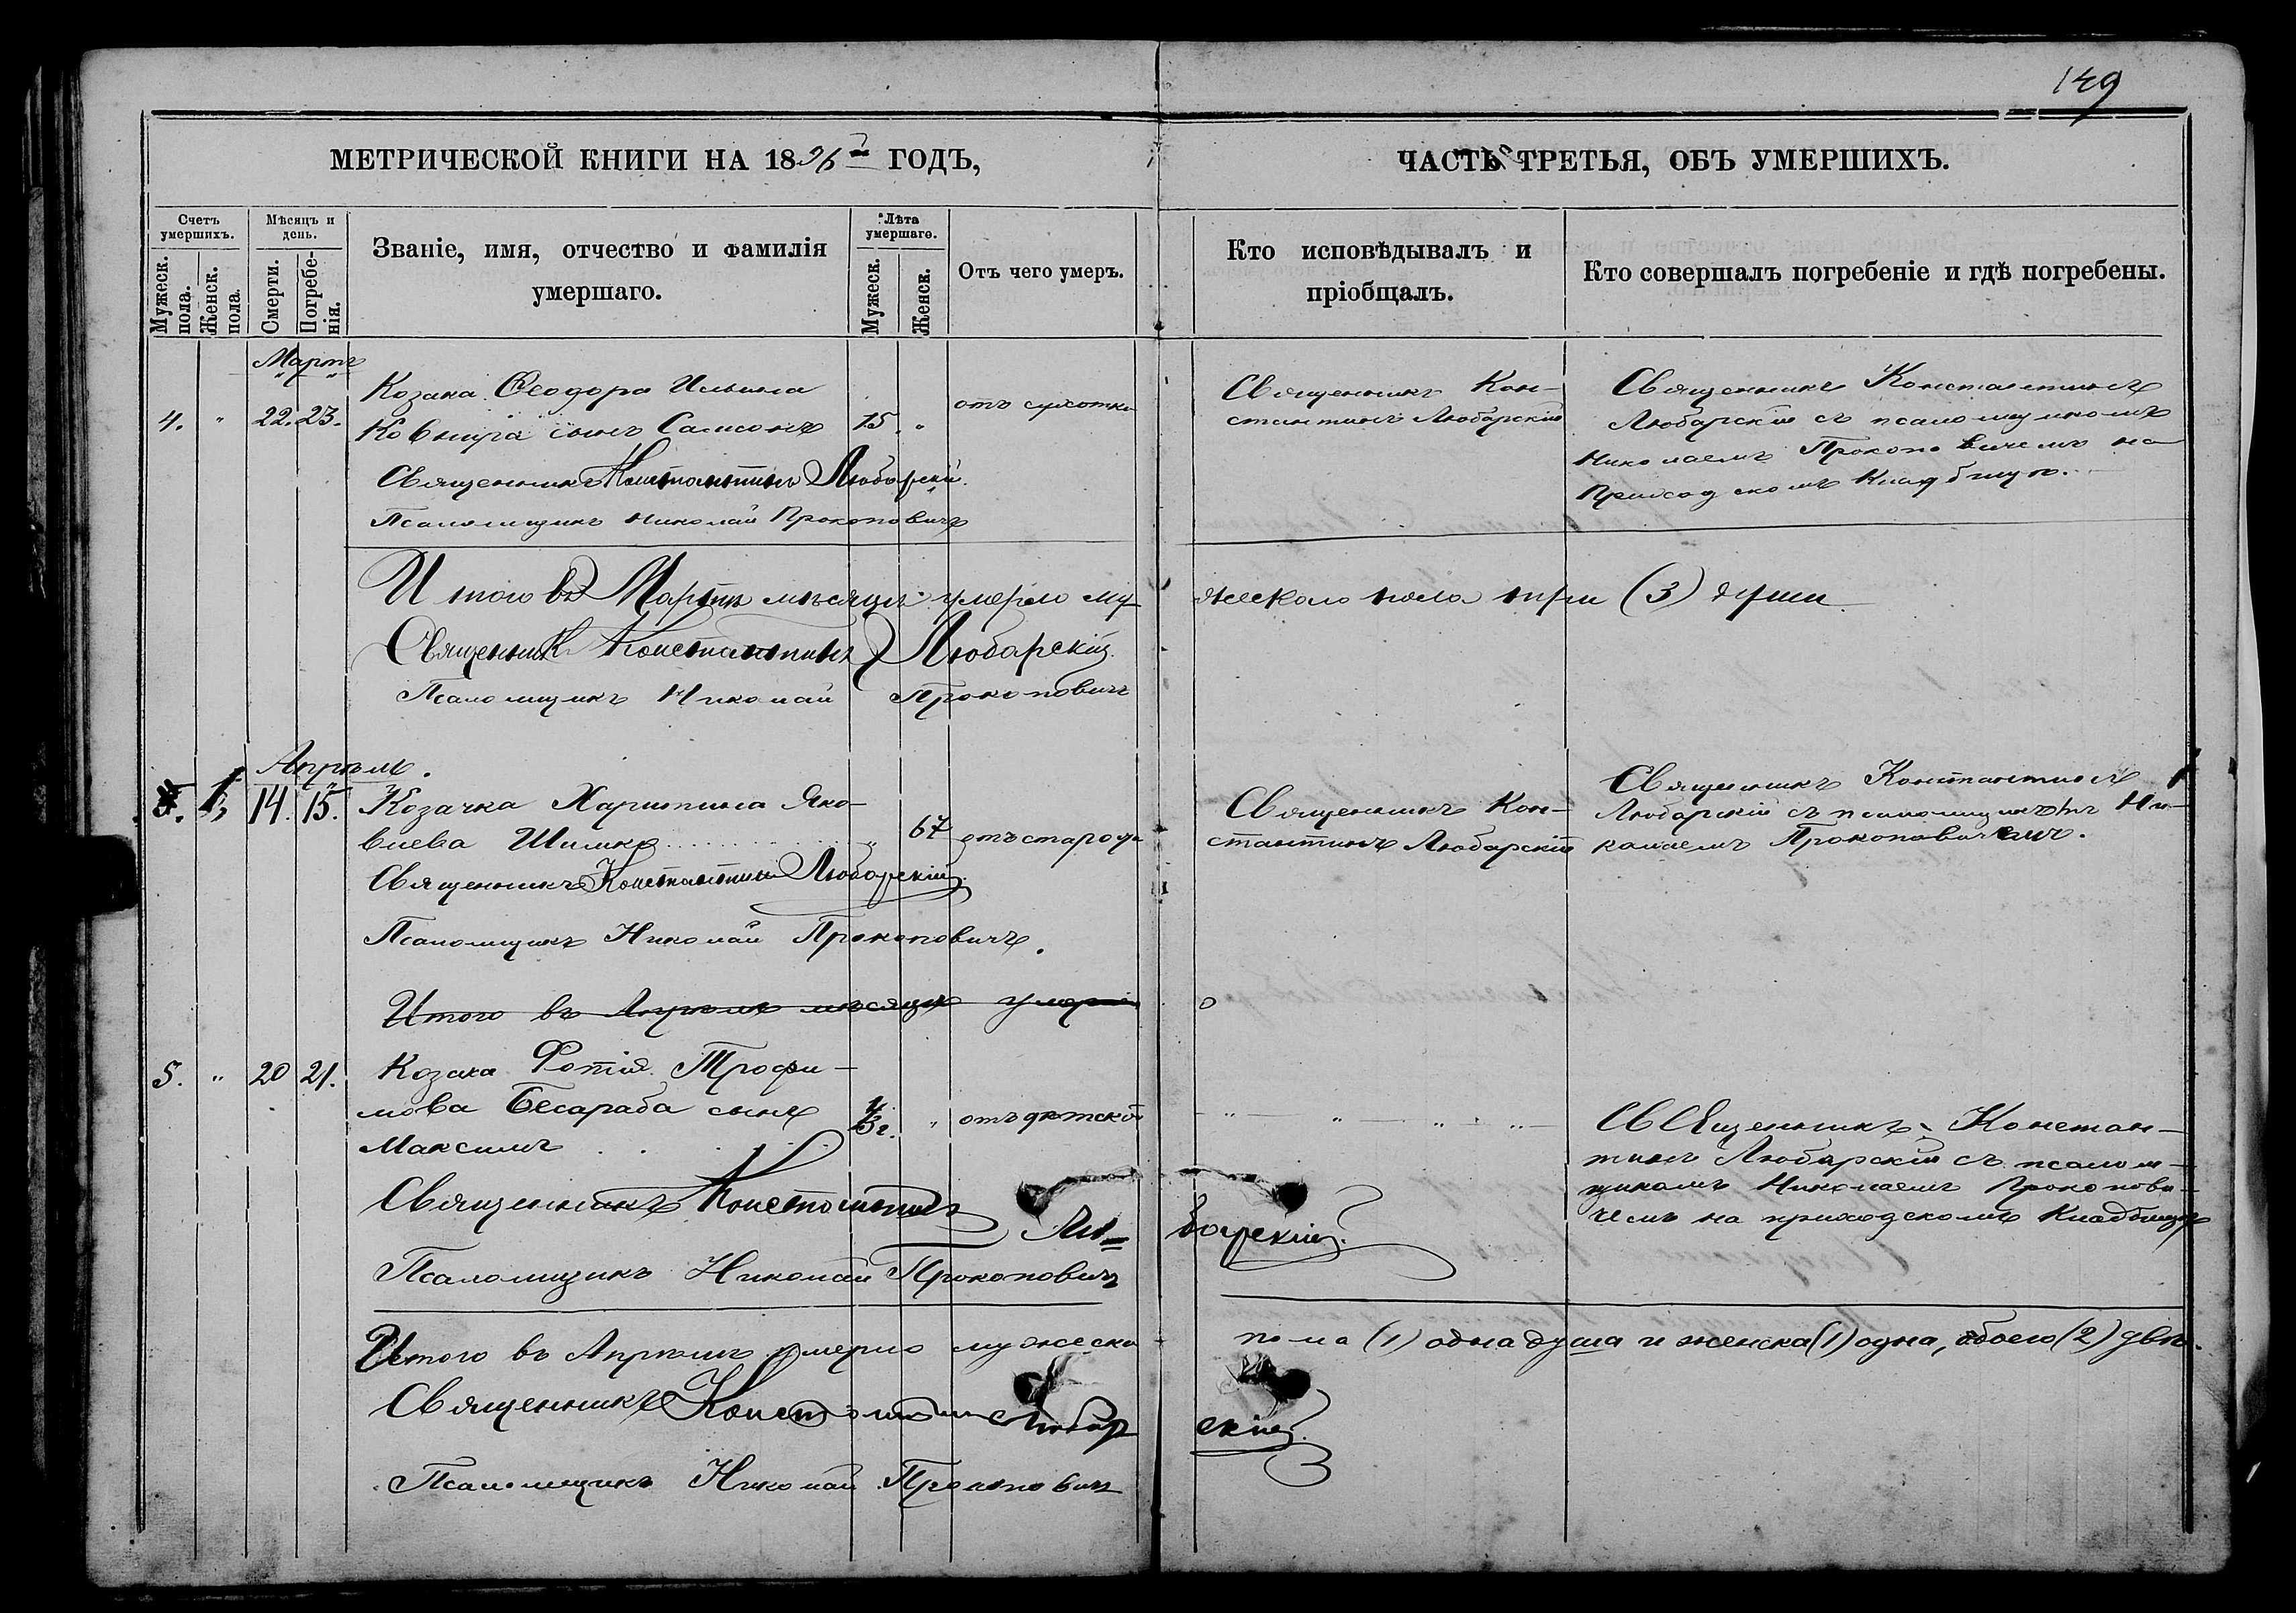 149
МЕТРИЧЕСКОЙ КНИГИ НА 1896 ГОДЪ,
ЧАСТЬ ТРЕТЬЯ, ОБЪ УМЕРШИХЪ.
Счетъ умершихъ.
Мужеск. пола.
Женск. пола.
Мѣсяцъ и день.
Смерти.
Погребенія.
Званіе, имя, отчество и фамилія
умершаго.
Лѣта умершаго.
Мужеск.
Женск.
Отъ чего умеръ.
Кто исповѣдывалъ и
пріобщалъ.
Кто совершалъ погребеніе и гдѣ погребены.
Мартъ
4. " 22. 23.
Козака Ѳеодора Ильина
Ковнира сынъ Самсонъ 15. "
отъ сухотки
Священникъ Кон-
стантинъ Любарскій
Священникъ Константинъ
Любарскій съ псаломщикомъ
Николаемъ Прокоповичемъ на
Приходскомъ Кладбищѣ.
Священникъ Константинъ Любарскій.
Псаломщикъ Николай Прокоповичъ
Итого въ Мартѣ мѣсяцѣ умерло му-
жескаго пола три (3) души
Священникъ Константинъ Любарскій.
Псаломщикъ Николай Прокоповичъ
Апрѣль.
14. 15.
Козачка Харитина Яко-
влева Шилико " 67
отъ старости
Священникъ Кон-
стантинъ Любарскій
Священникъ Константинъ
Любарскій съ псаломщикомъ Ни-
колаемъ Прокоповичемъ.
Священникъ Константинъ Любарскій.
Псаломщикъ Николай Прокоповичъ.
Итого въ Апрѣлѣ мѣсяцѣ умерло
5. " 20 21.
Козака Фотія Трофи-
мова Бесараба сынъ
Максимъ
1/3 г. "
отъ дѣтской
Священникъ Констан-
тинъ Любарскій съ псалом-
щикомъ Николаемъ Прокопови-
чемъ на приходскомъ Кладбищѣ
Священникъ Константинъ Лю-
барскій.
Псаломщикъ Николай Прокоповичъ
Итого въ Апрѣлѣ умерло мужеска
пола (1) одна душа и женска (1) одна, обоего (2) двѣ.
Священникъ Константинъ Любар
скій.
Псаломщикъ Николай Прокоповичъ